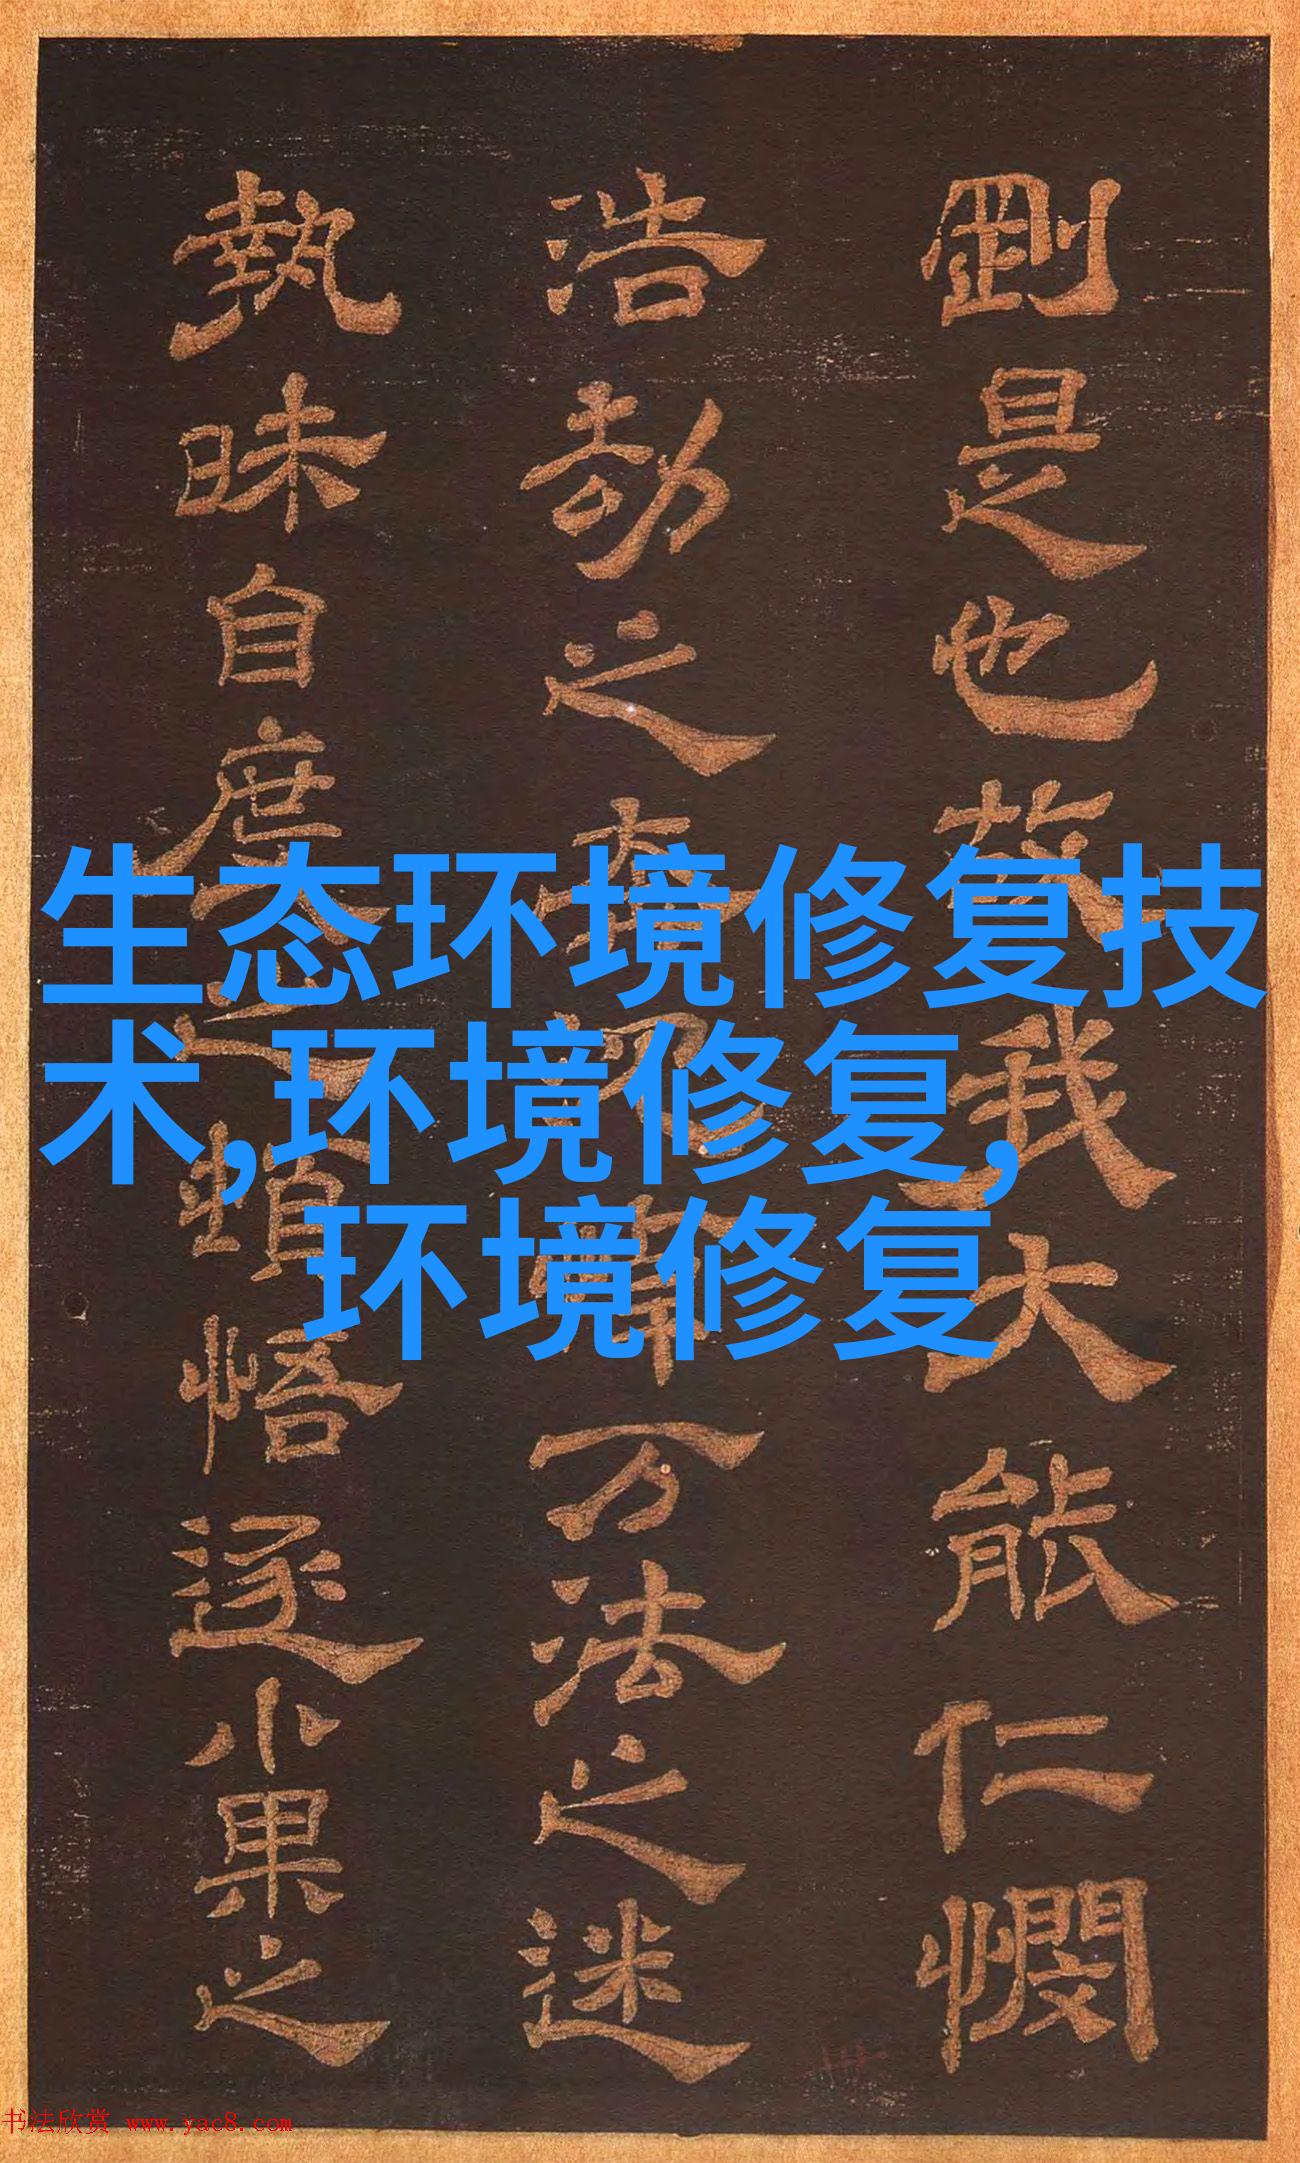 剛是也故我大能仁憫
浩劫之
万法之迷
執昧自度之頓悟逐小果之
生态环境修复技
术,环境修复,
环境修复
书法欣赏 www.yac8.com